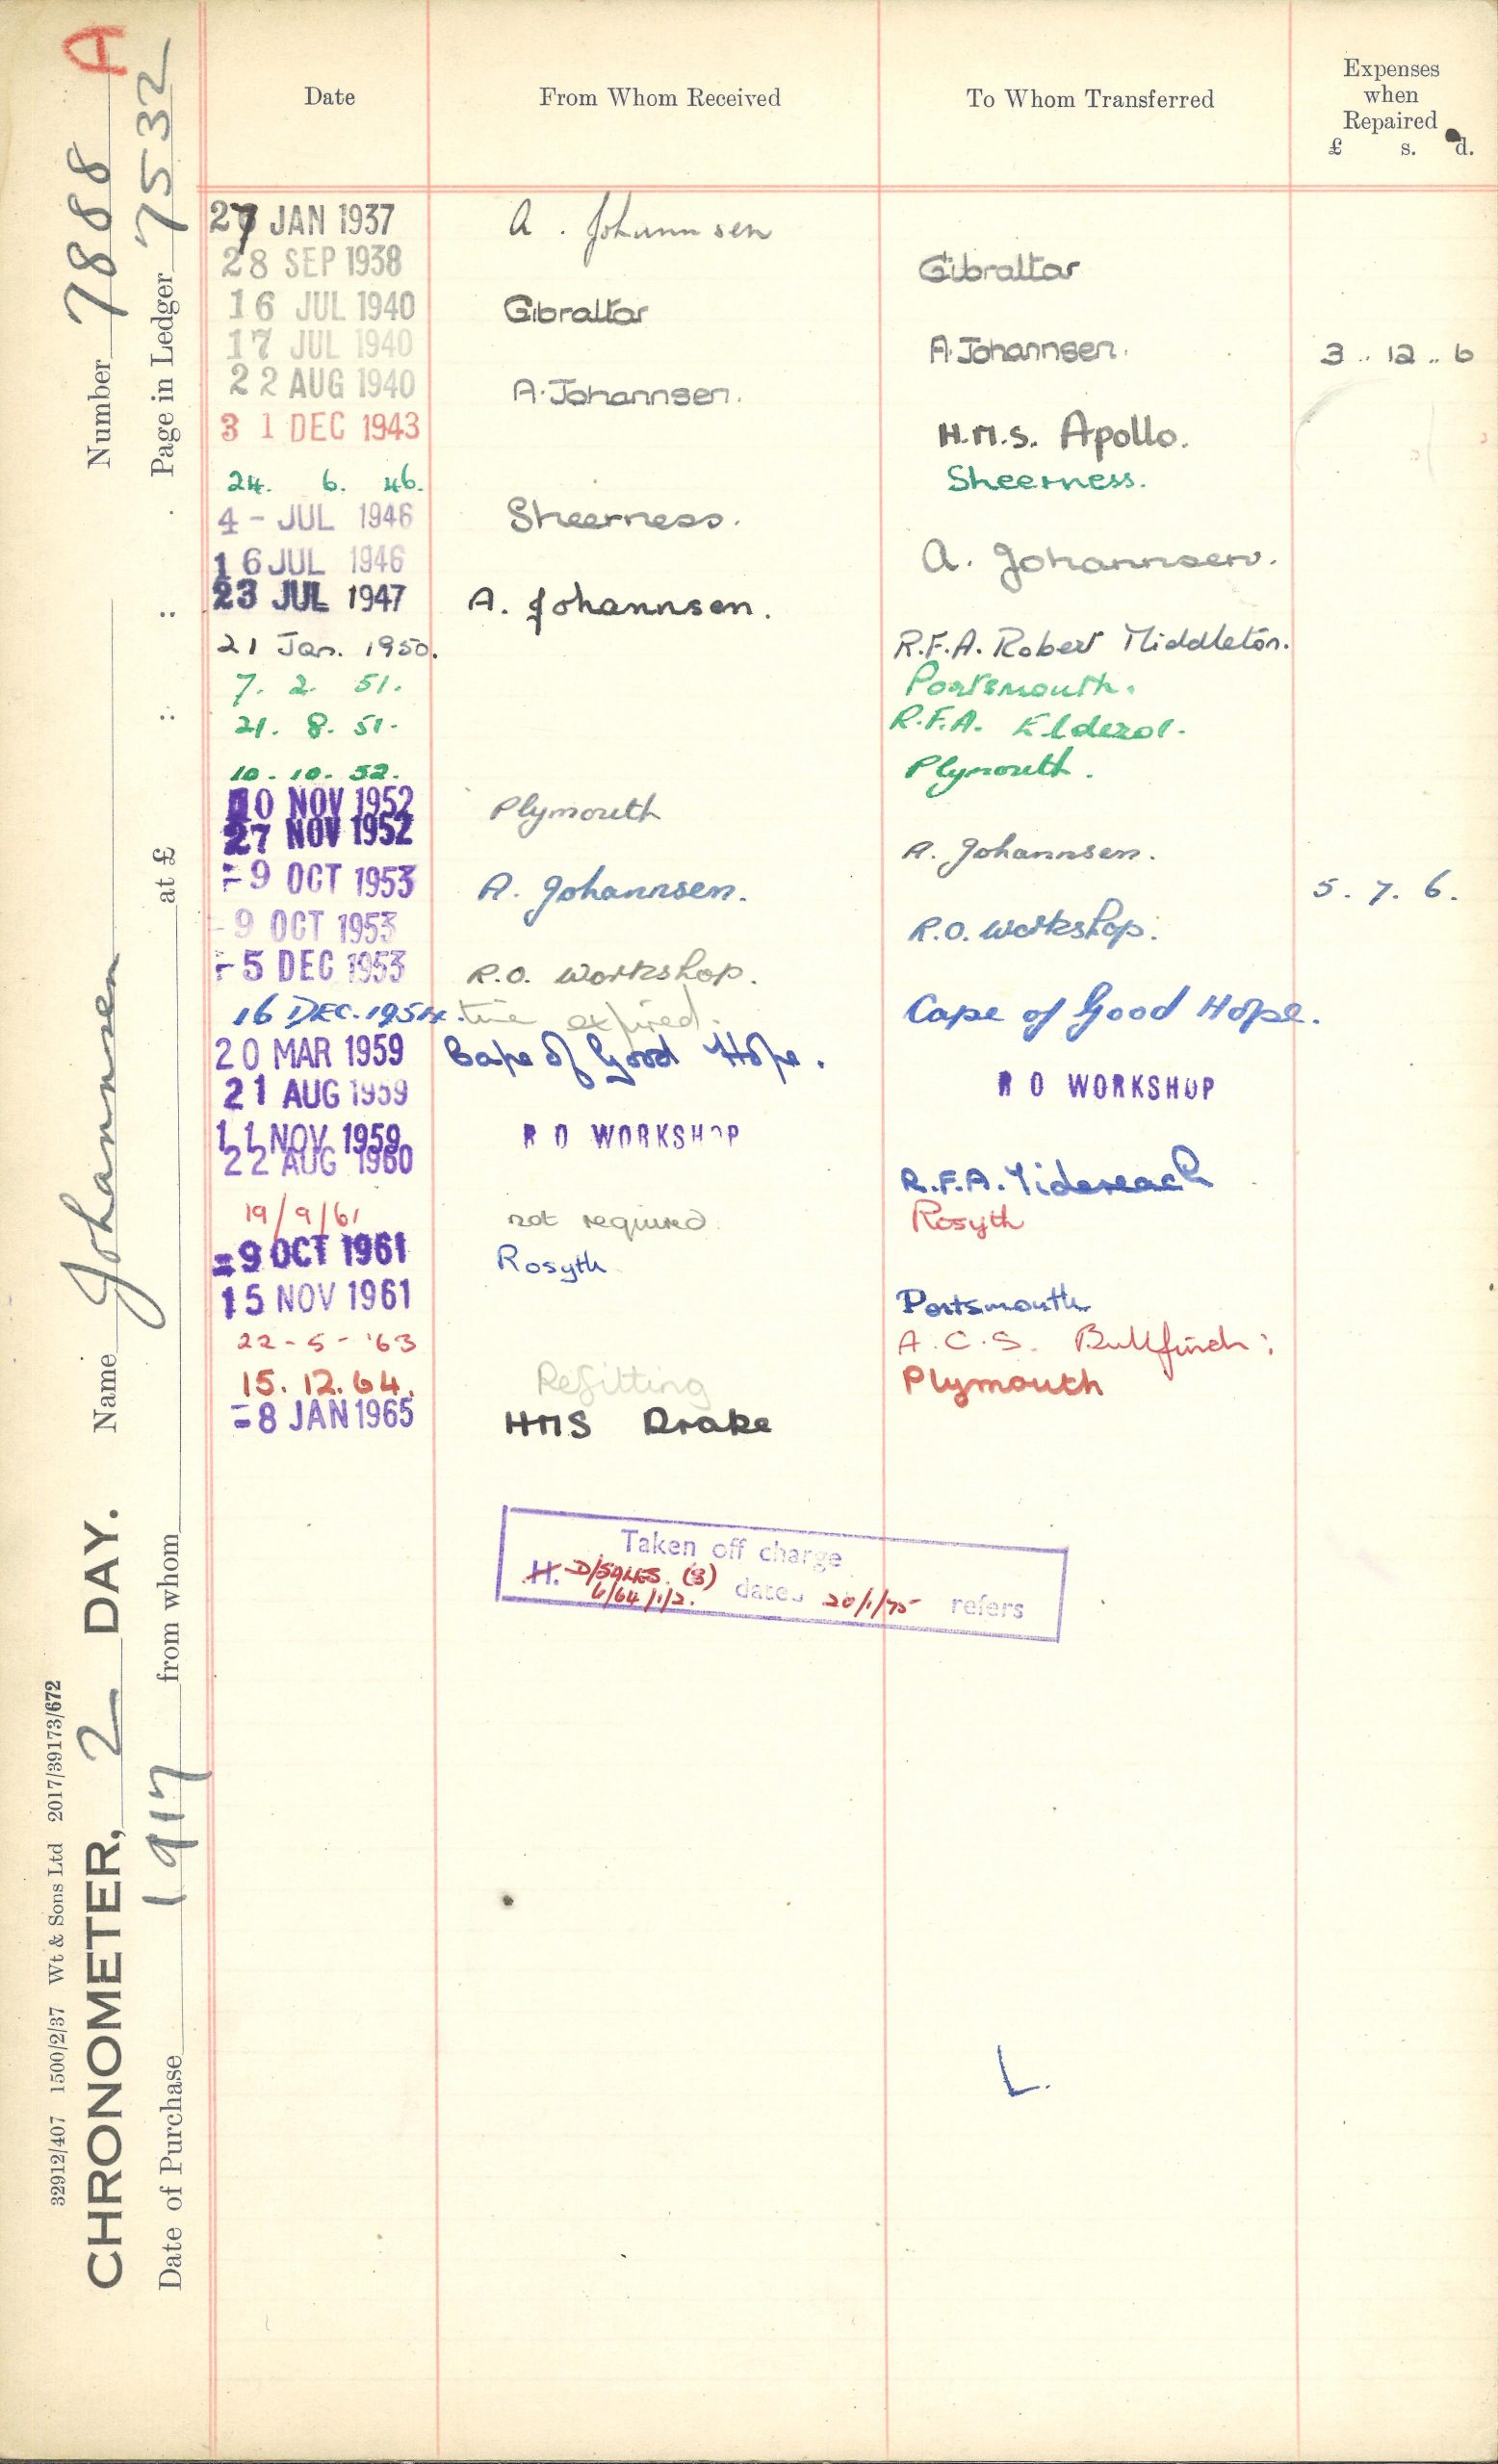 32912/407 1500/2/37 Wt & Sons Ltd 2017/39173/672
CHRONOMETER, 2 DAY. Name Johannsen Number 7888 A
Date of Purchase 1917 from whom at £ : : : : . Page in Ledger 7532
Date From Whom Received To Whom Transferred Expenses when Repaired £ s. d.
27 JAN 1937 A. Johannsen
28 SEP 1938 Gibraltar
16 JUL 1940 Gibraltar
17 JUL 1940 A. Johannsen. 3 .. 12 .. 6
22 AUG 1940 A. Johannsen.
31 DEC 1943 H.M.S. Apollo.
24. 6. 46. Sheerness.
4 - JUL 1946 Sheerness.
16 JUL 1946 A. Johannsen.
23 JUL 1947 A. Johannsen.
21 Jan. 1950. R.F.A. Robert Middleton.
7. 2. 51. Portsmouth.
21. 8. 51. R.F.A. Elderol.
10. 10. 52. Plymouth.
10 NOV 1952 Plymouth
27 NOV 1952 A. Johannsen.
-9 OCT 1953 A. Johannsen. 5. 7. 6.
-9 OCT 1953 R.O. Workshop.
-5 DEC 1953 R.O. Workshop.
16 DEC. 1954. time expired. Cape of Good Hope.
20 MAR 1959 Cape of Good Hope.
21 AUG 1959 R O WORKSHOP
11 NOV 1959 R O WORKSHOP
22 AUG 1960 R.F.A. Tidereach
19/9/61 not required Rosyth
=9 OCT 1961 Rosyth
15 NOV 1961 Portsmouth
22-5-'63 A.C.S. Bullfinch:
15. 12. 64. Refitting Plymouth
=8 JAN 1965 HMS Drake
Taken off charge
H. D/SALES. (3) 6/64/1/2. dated 20/1/75 refers
L.